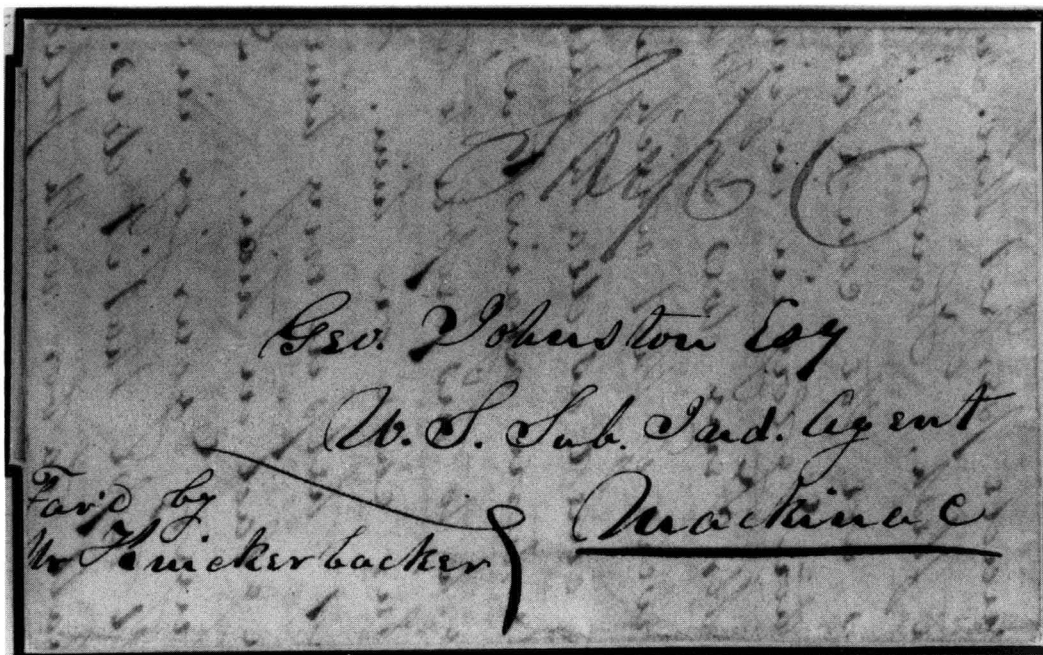 Ship 6
Geo. Johnston Esq
U. S. Sub. Ind. Agent
Mackinac
Fav'd by
Mr Knickerbacker